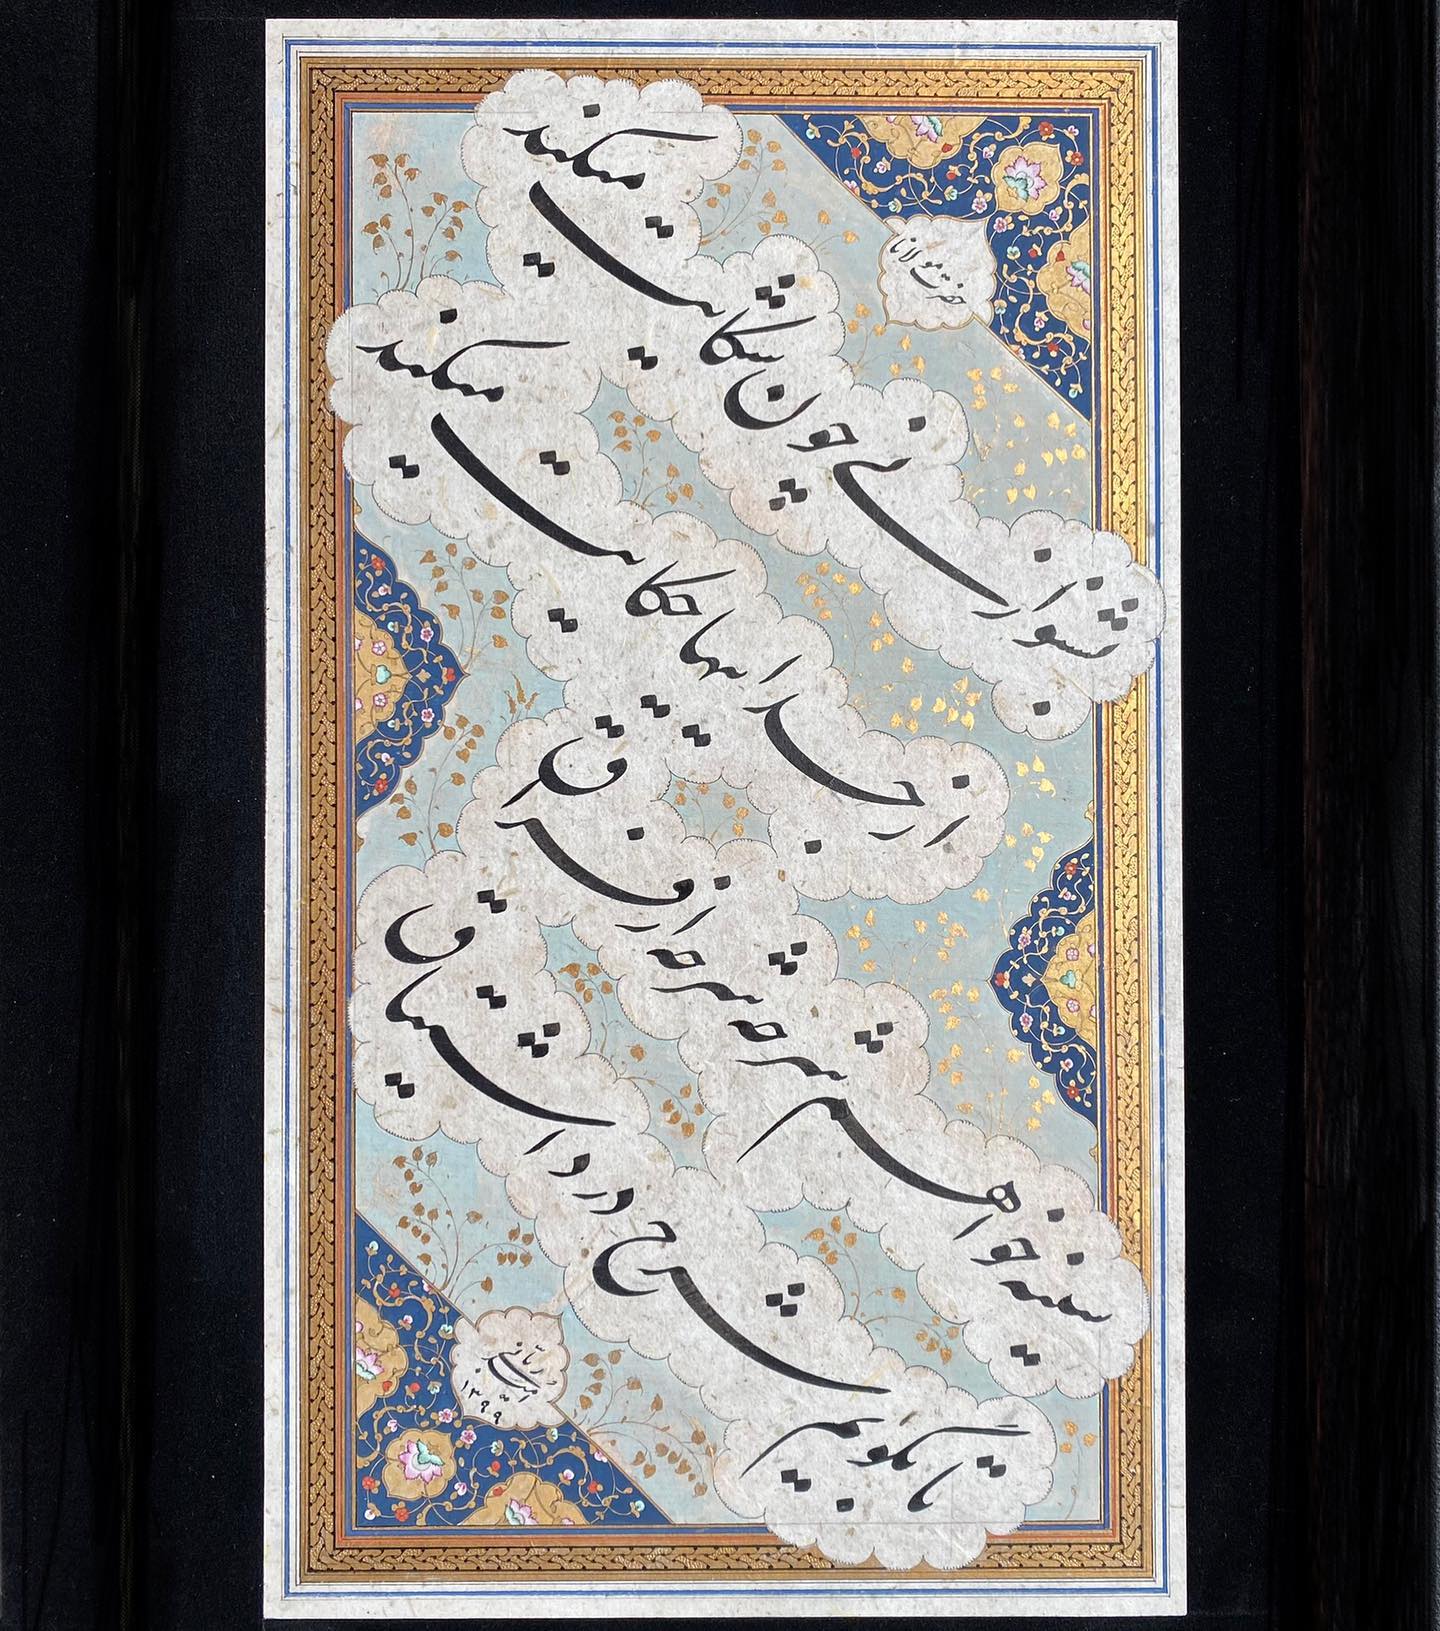 حضرت مولانا
بشنو از نی چون شکایت میکند
از جداییها حکایت میکند
سینه خواهم شرحه شرحه از فراق
تا بگویم شرح درد اشتیاق
امید ربانی
۱۳۹۹